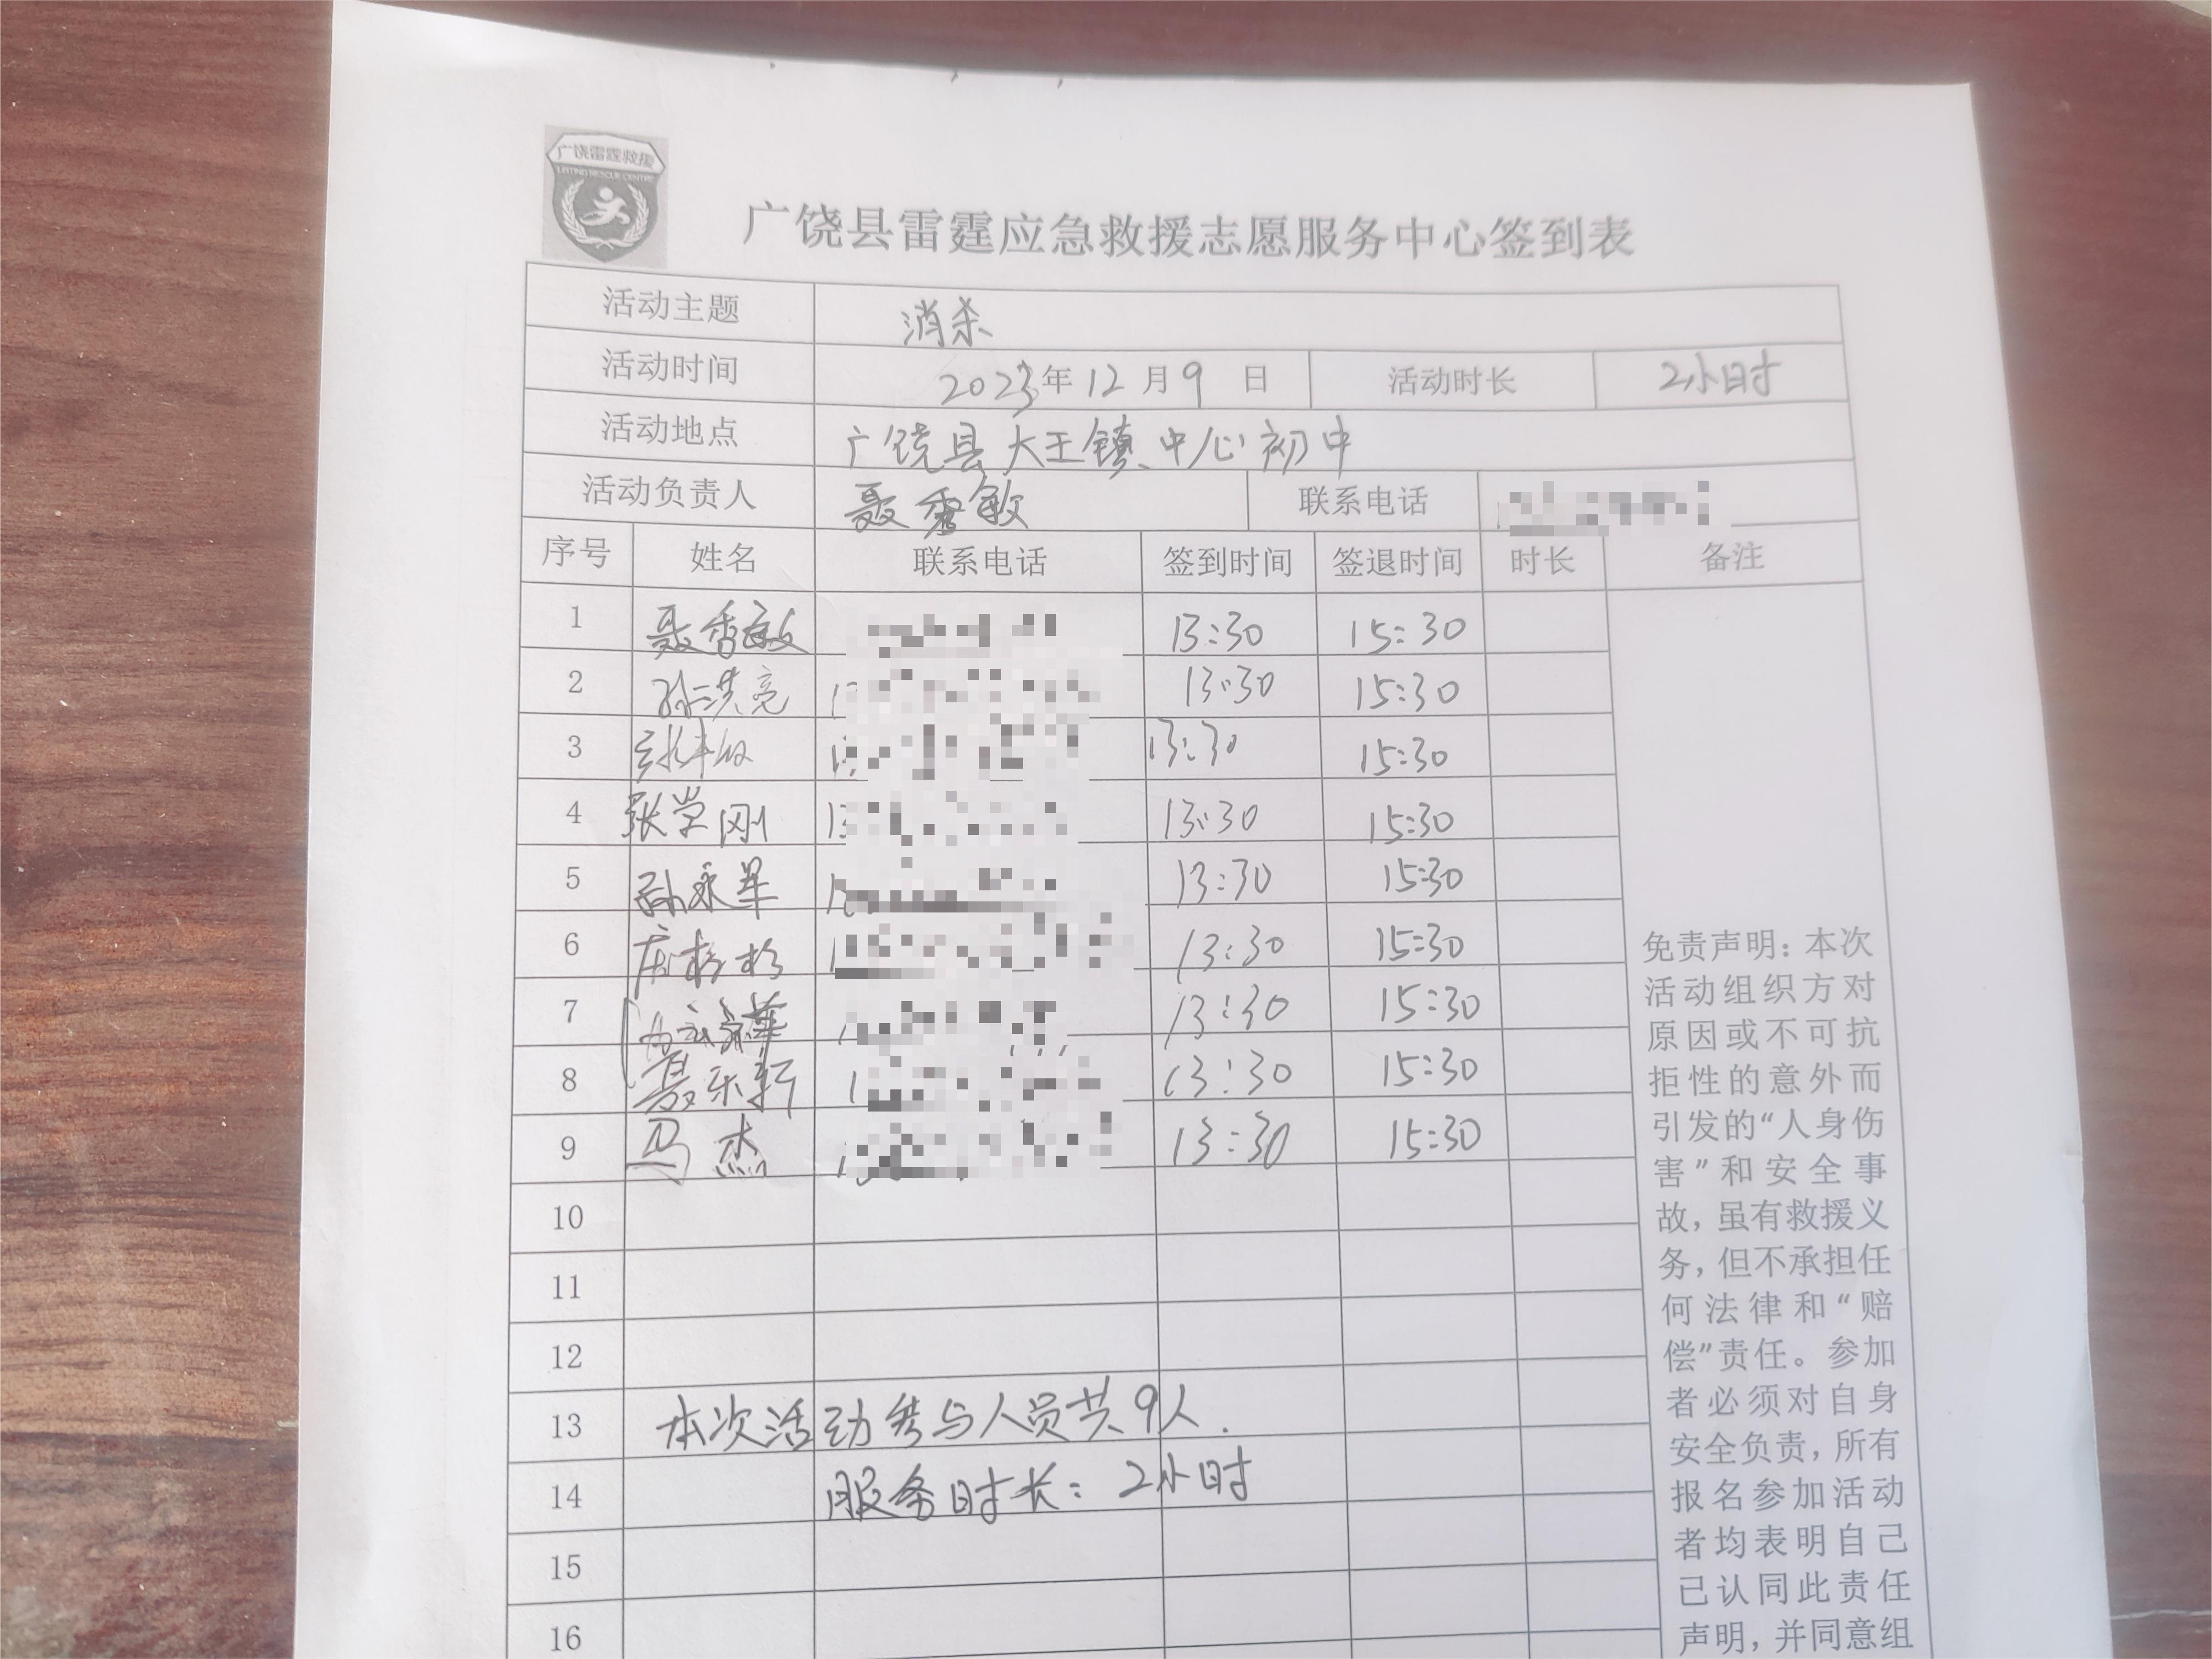 广饶雷霆救援
LEITING RESCUE CENTRE
广饶县雷霆应急救援志愿服务中心签到表
活动主题 消杀
活动时间 2023年12月9日 活动时长 2小时
活动地点 广饶县大王镇中心初中
活动负责人 聂秀敏 联系电话
序号 姓名 联系电话 签到时间 签退时间 时长 备注
1 聂秀敏 13:30 15:30
2 孙洪亮 13:30 15:30
3 13:30 15:30
4 张学刚 13:30 15:30
5 孙永军 13:30 15:30
6 杉杉 13:30 15:30
7 13:30 15:30
8 聂乐轩 13:30 15:30
9 马杰 13:30 15:30
10
11
12
13 本次活动参与人员共9人.
14 服务时长：2小时
15
16
免责声明：本次
活动组织方对
原因或不可抗
拒性的意外而
引发的“人身伤
害”和安全事
故，虽有救援义
务，但不承担任
何法律和“赔
偿”责任。参加
者必须对自身
安全负责，所有
报名参加活动
者均表明自己
已认同此责任
声明，并同意组